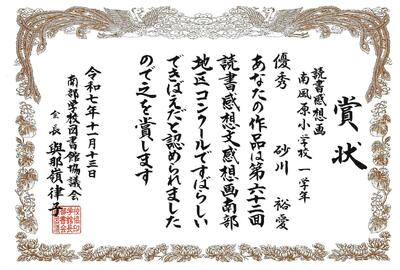 賞状
読書感想画
南風原小学校 一学年
優秀 砂川 裕愛
あなたの作品は第六十二回
読書感想文感想画南部
地区コンクールですばらしい
できばえだと認められました
ので之を賞します
令和七年十一月十三日
南部学校図書館協議会
会長 與那嶺律子